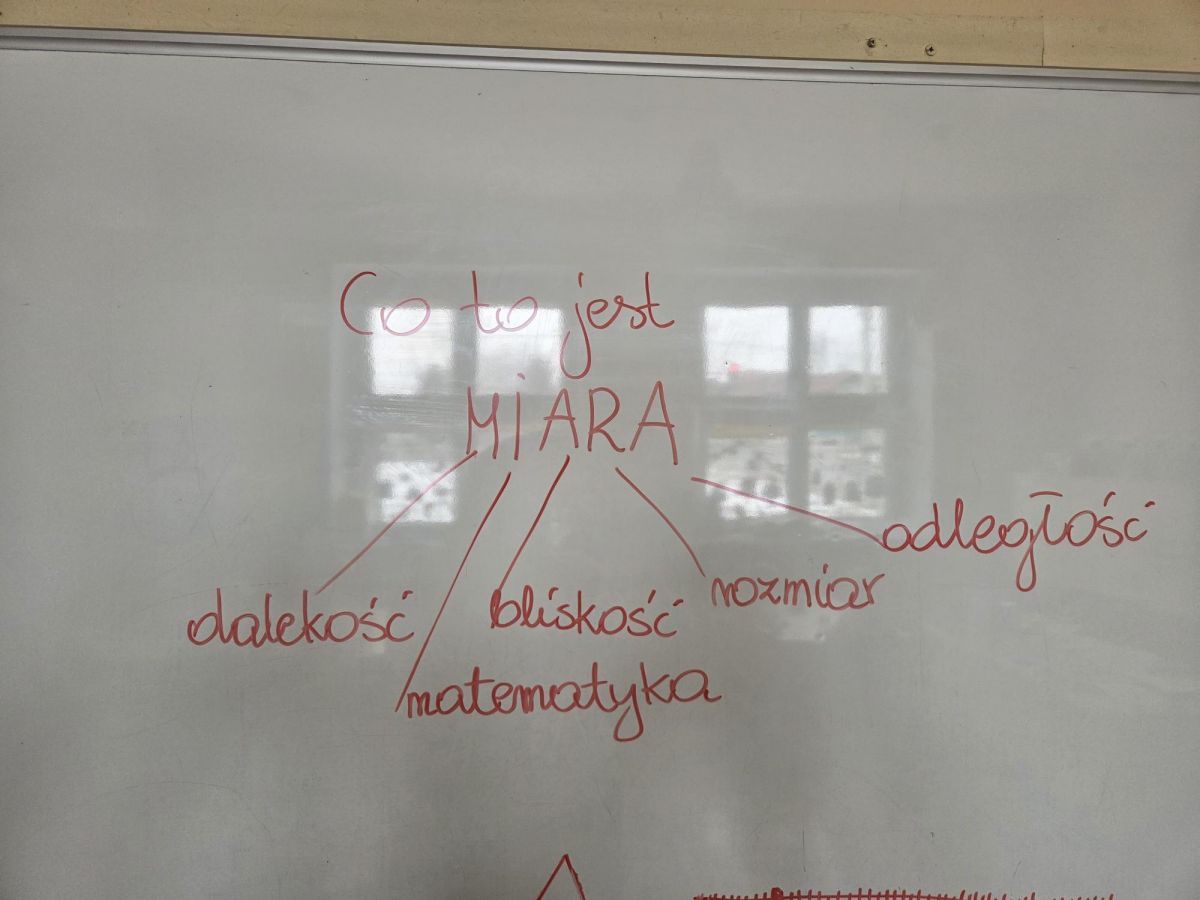 Co to jest
MiARA
odległość
rozmiar
dalekość
bliskość
matematyka